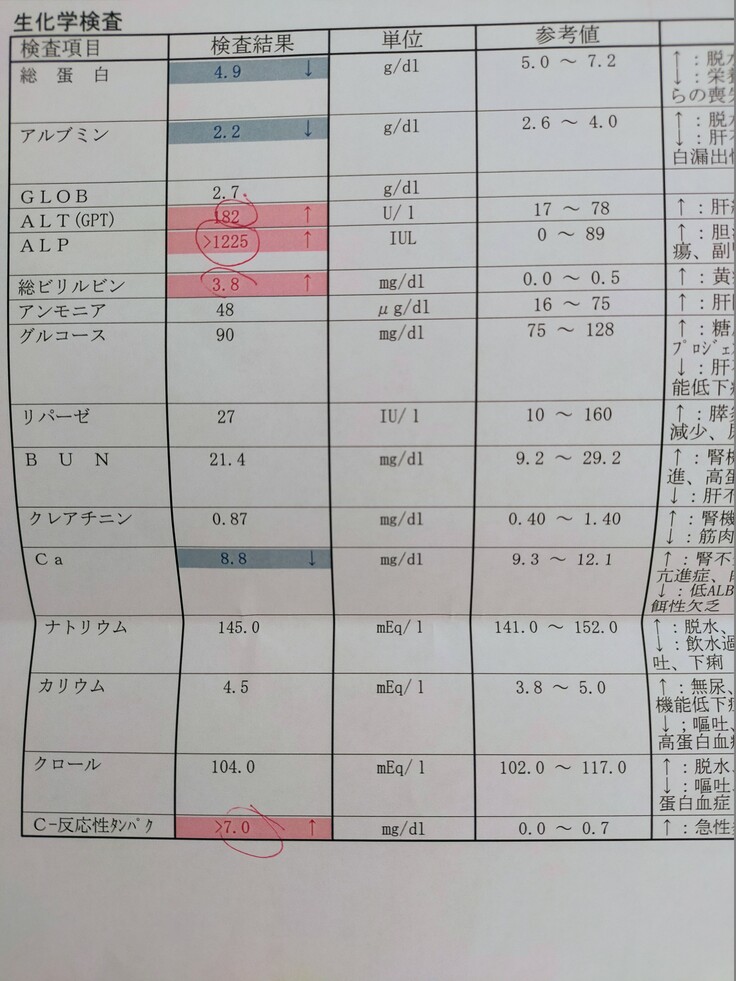 生化学検査
検査項目 検査結果 単位 参考値
総蛋白 4.9 ↓ g/dl 5.0 ～ 7.2 ↑：脱水
↓：栄養
らの喪失
アルブミン 2.2 ↓ g/dl 2.6 ～ 4.0 ↑：脱水
↓：肝不
白漏出性
GLOB 2.7 g/dl
ALT(GPT) 182 ↑ U/l 17 ～ 78 ↑：肝
ALP >1225 ↑ IUL 0 ～ 89 ↑：胆
瘍、副腎
総ビリルビン 3.8 ↑ mg/dl 0.0 ～ 0.5 ↑：黄
アンモニア 48 μg/dl 16 ～ 75 ↑：肝
グルコース 90 mg/dl 75 ～ 128 ↑：糖
プロジェ
↓：肝
能低下
リパーゼ 27 IU/l 10 ～ 160 ↑：膵
減少、
BUN 21.4 mg/dl 9.2 ～ 29.2 ↑：腎機
進、高蛋
↓：肝不
クレアチニン 0.87 mg/dl 0.40 ～ 1.40 ↑：腎機
↓：筋肉
Ca 8.8 ↓ mg/dl 9.3 ～ 12.1 ↑：腎不
亢進症、
↓：低ALB
餌性欠乏
ナトリウム 145.0 mEq/l 141.0 ～ 152.0 ↑：脱水、
↓：飲水過
吐、下痢
カリウム 4.5 mEq/l 3.8 ～ 5.0 ↑：無尿、
機能低下
↓；嘔吐、
高蛋白血
クロール 104.0 mEq/l 102.0 ～ 117.0 ↑：脱水
↓：嘔吐
蛋白血症
C-反応性ﾀﾝﾊﾟｸ >7.0 ↑ mg/dl 0.0 ～ 0.7 ↑：急性